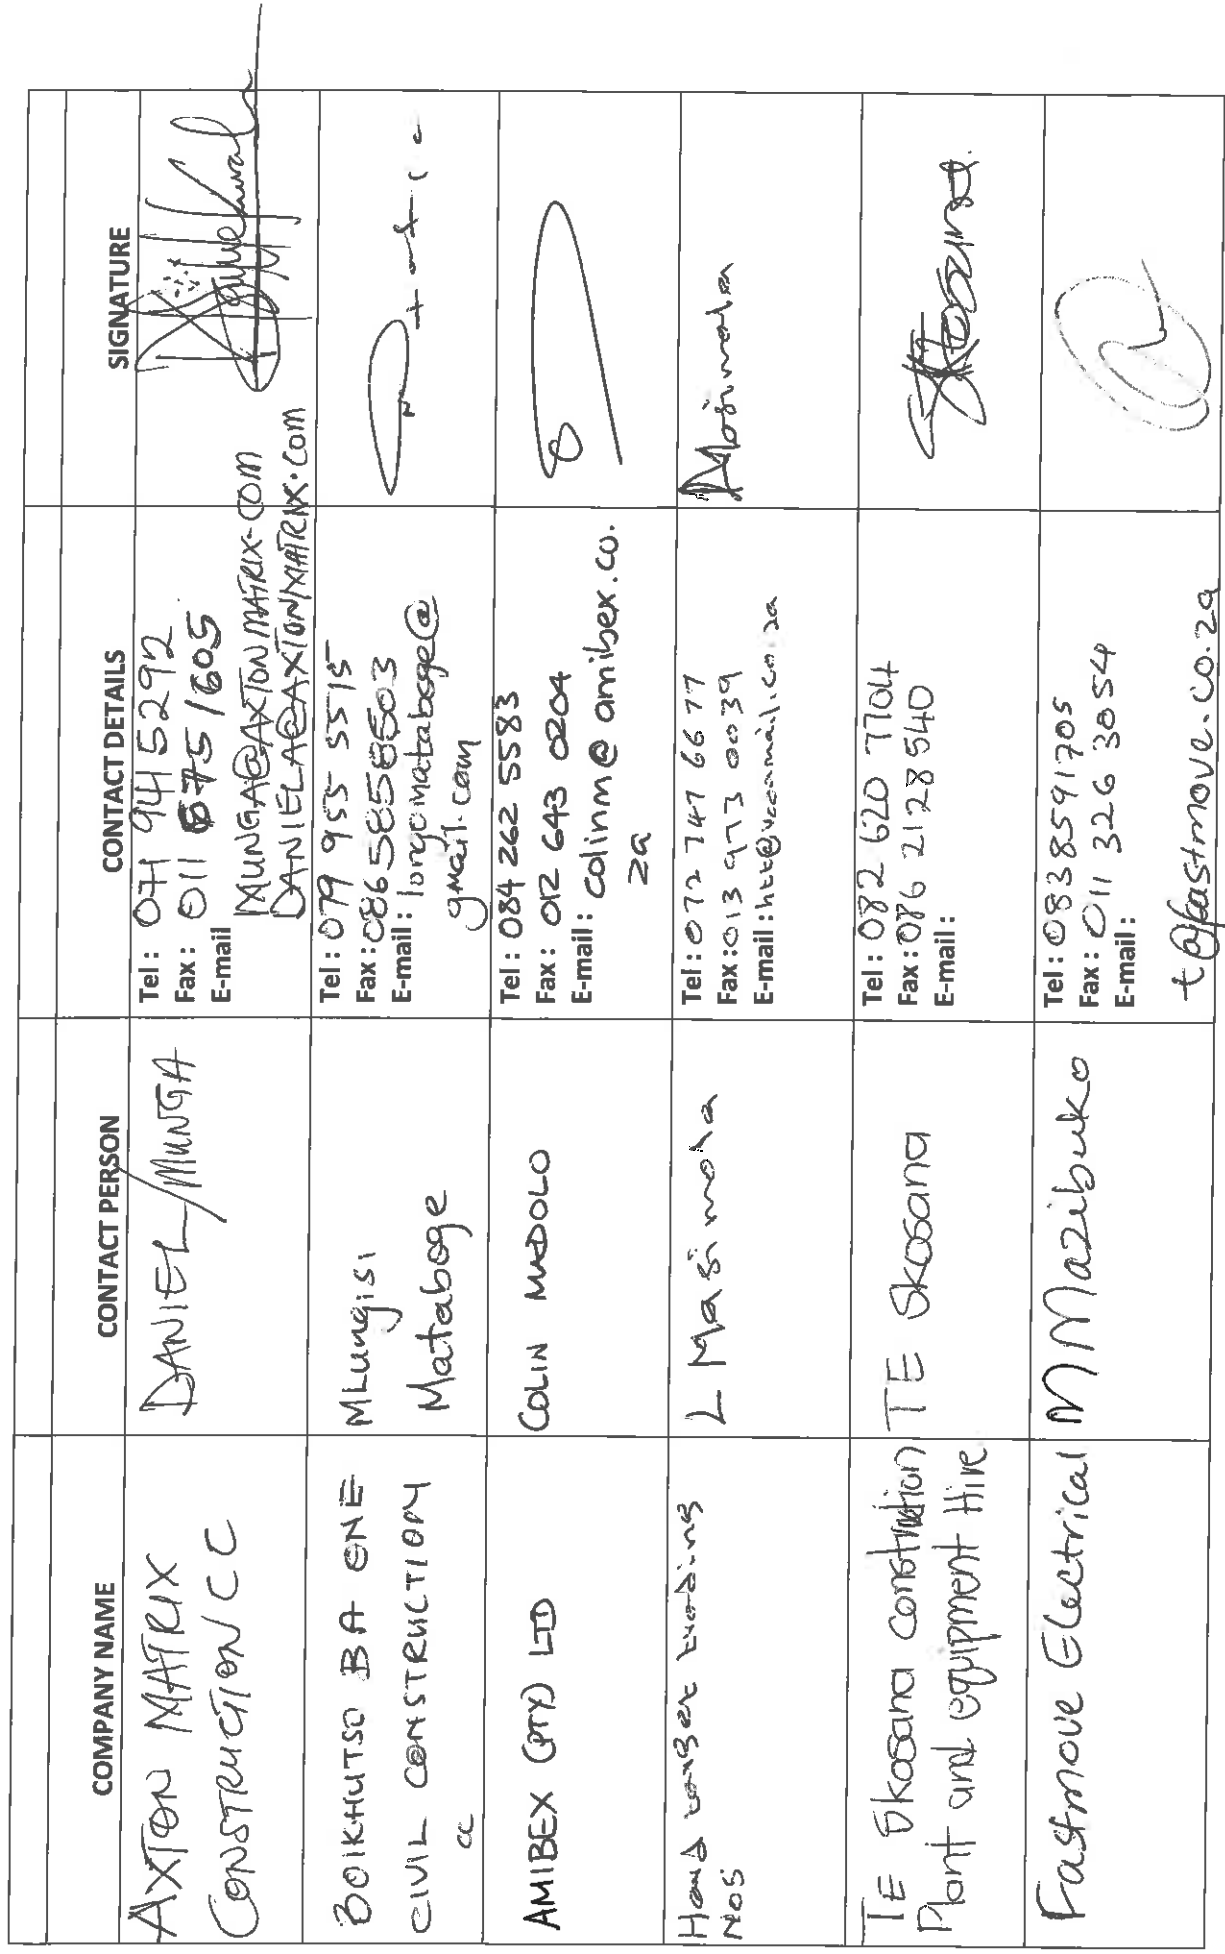 COMPANY NAME
CONTACT PERSON
CONTACT DETAILS
SIGNATURE
AXTON MATRIX
CONSTRUCTION CC
DANIEL/MUNGA
Tel : 071 941 5292
Fax : 011 675 1605
E-mail
MUNGA@AXTONMATRIX.COM
DANIELA@AXTONMATRIX.COM
BOIKHUTSO BA ONE
CIVIL CONSTRUCTION
cc
MLungisi
Mataboge
Tel : 079 955 5515
Fax : 086 5858603
E-mail : longomataboge@
gmail.com
AMIBEX (PTY) LTD
COLIN MADOLO
Tel : 084 262 5583
Fax : 012 643 0204
E-mail : colinm@amibex.co.
za
Hand trading
NO5
L Masimola
Tel : 072 747 6677
Fax : 013 973 0039
E-mail :
TE Skosana construction
Plant and equipment Hire
TE Skosana
Tel : 082 620 7704
Fax : 086 2128540
E-mail :
Skosana
Fastmove Electrical
M Mazibuko
Tel : 083 8591705
Fax : 011 326 3054
E-mail :
t@fastmove.co.za